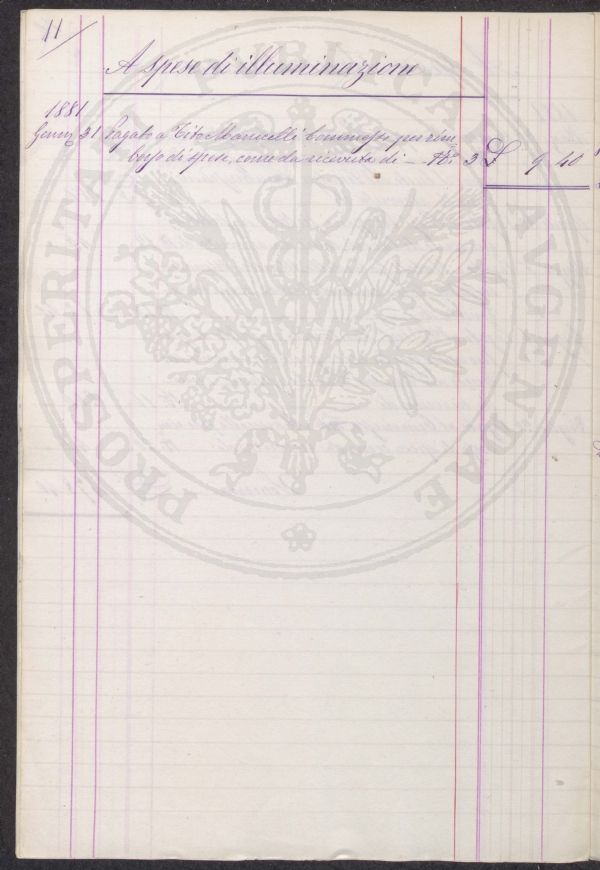 11
A spese di illuminazione
1881
Genn° 31 Pagato a Tito Manicelli Commesso per rim
borso di spese, come da ricevuta di — N° 3 £ 9 40
PROSPERITATI PUBLICAE AVGENDAE